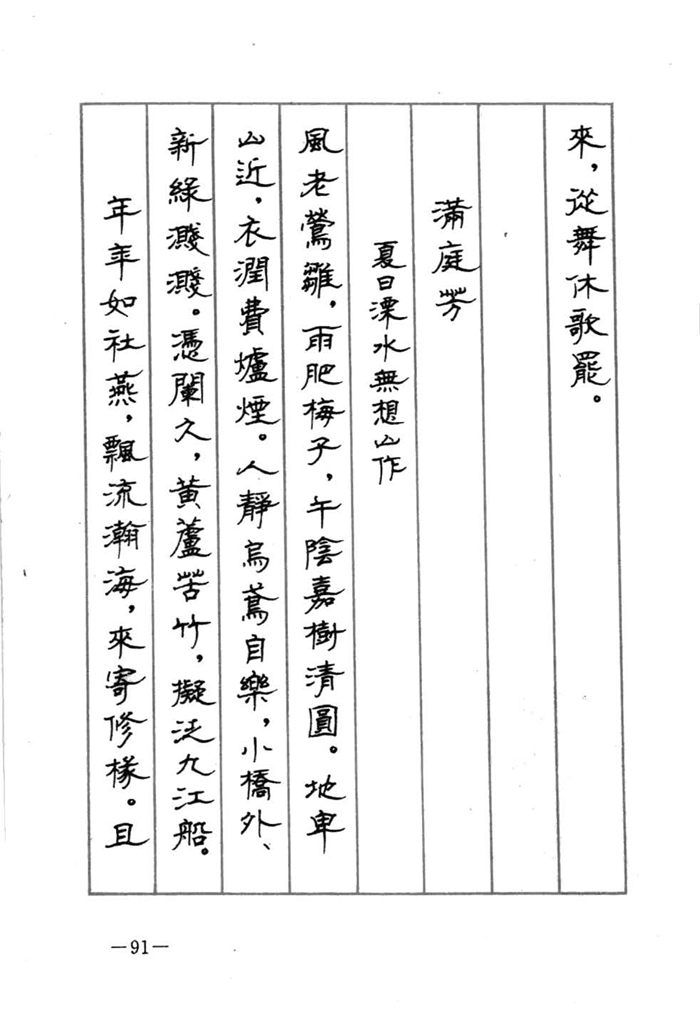 來，從舞休歌罷。
滿庭芳
夏日溧水無想山作
風老鶯雛，雨肥梅子，午陰嘉樹清圓。地卑
山近，衣潤費爐煙。人靜烏鳶自樂，小橋外、
新綠濺濺。憑闌久，黃蘆苦竹，擬泛九江船。
年年如社燕，飄流瀚海，來寄修椽。且
—91—